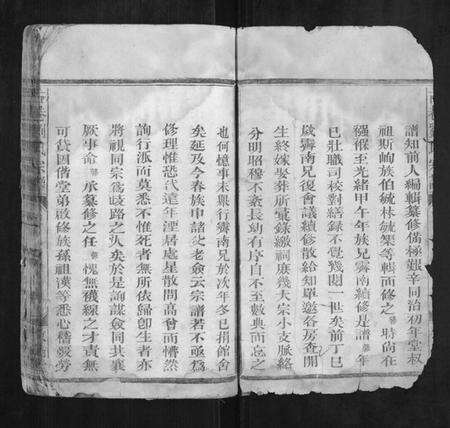 譜知前人編輯纂修備極艱辛同治初年堂叔
祖斯峋族伯毓林毓桀等輯而修之 時尚在
襁褓至光緒甲午年族兄霽南續修是譜 年
已壯職司校對結録不覺幾閱一世矣前丁巳
歲霽南兄復會議續修散給知單邀各房查開
生終嫁娶葬所彙録繳祠庶幾大宗小支脈絡
分明昭穆不紊長幼有序自不至數典而忘之
也何憶事未舉行霽南兄於次年冬已捐館舍
矣延及今春族中諸父老僉云宗譜若不亟爲
修理惟恐代遠年湮居處星散問高曾而懵然
詢行派而莫悉不惟死者無所依歸卽生者亦
將視同宗爲岐路之人矣於是詢謀僉同共襄
厥事命 承纂修之任 愧無襪線之才責無
可貸因偕堂弟啟修族孫祖漢等悉心稽覈勞